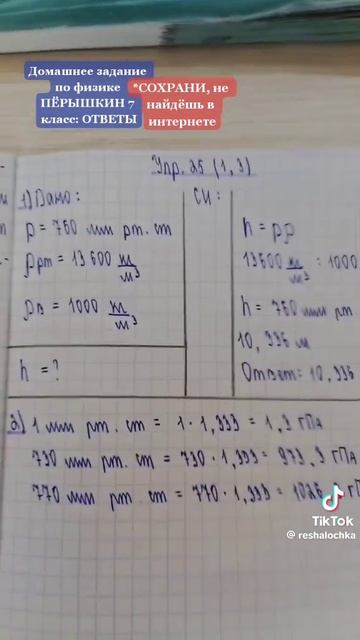 Домашнее задание
по физике
ПЁРЫШКИН 7
класс: ОТВЕТЫ
*СОХРАНИ, не
найдёшь в
интернете
Упр. 25 (1, 3)
1) Дано:
СИ:
p = 760 мм рт. ст
ρрт = 13 600 кг/м³
ρв = 1000 кг/м³
h = ?
13600 кг/м³ : 1000
h = 760 мм рт
10, 336 м
Ответ: 10, 336
2) 1 мм рт. ст = 1 · 1,333 = 1,3 гПа
730 мм рт. ст = 730 · 1,333 = 973,3 гПа
770 мм рт. ст = 770 · 1,333 = 1026
TikTok
@ reshalochka